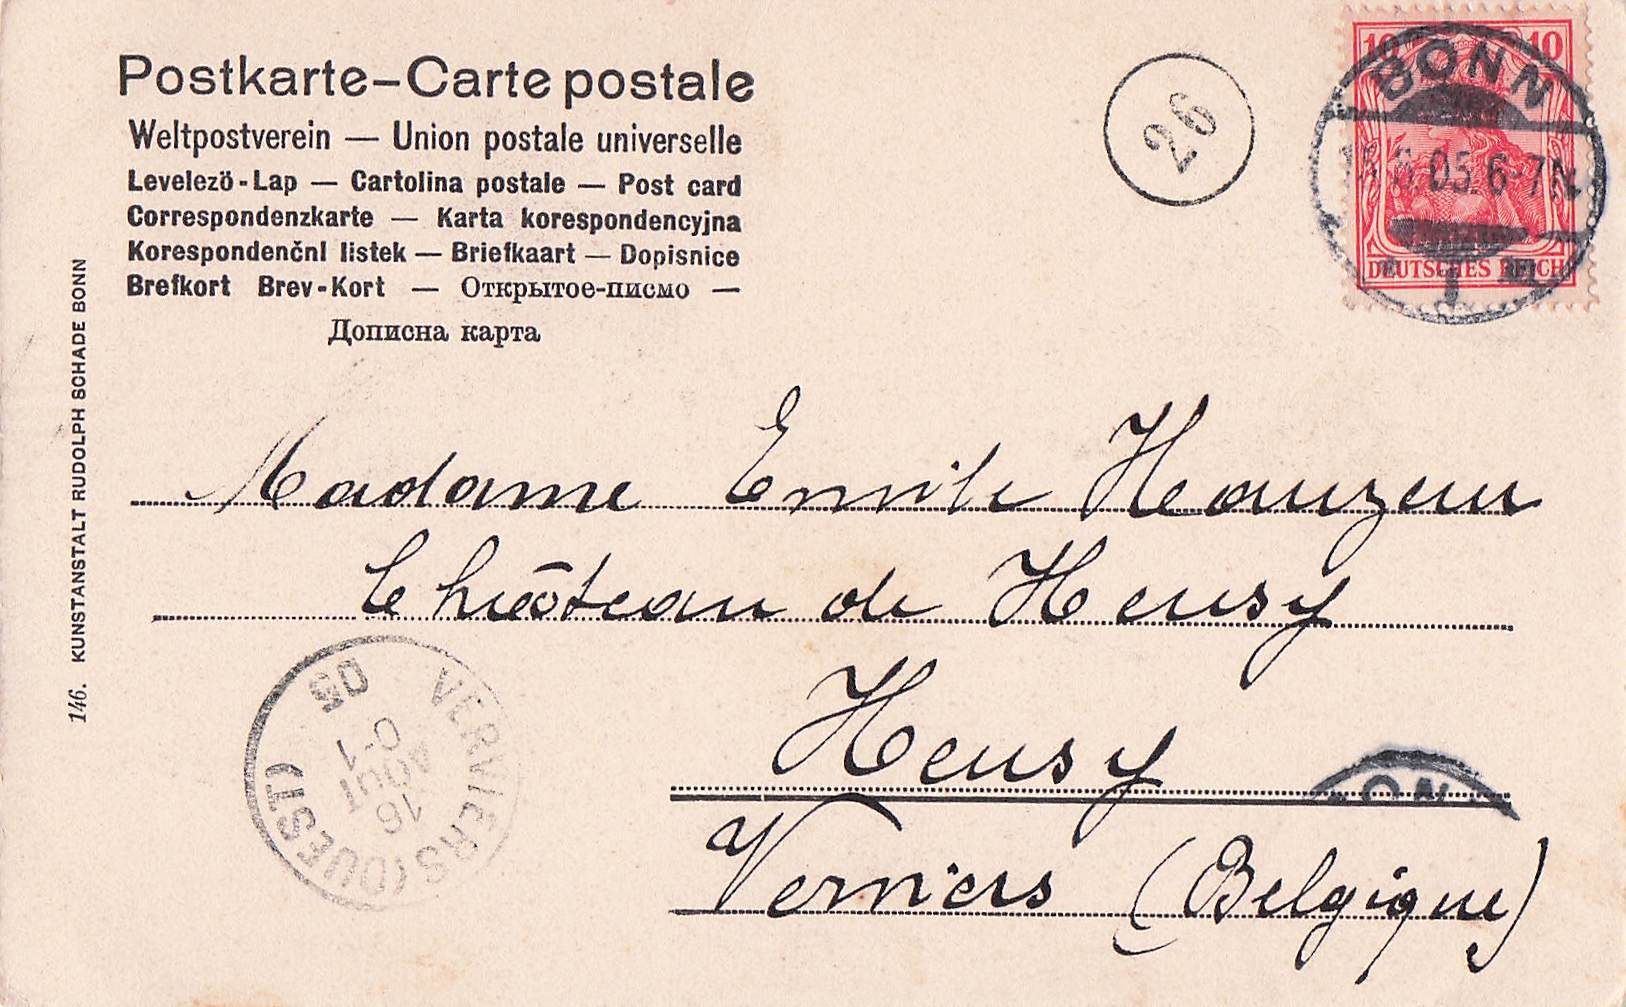 Postkarte–Carte postale
Weltpostverein — Union postale universelle
Levelezö-Lap — Cartolina postale — Post card
Correspondenzkarte — Karta korespondencyjna
Korespondenčnl listek — Briefkaart — Dopisnice
Brefkort Brev-Kort — Открытое-писмо —
Дописна карта
26
10 10
DEUTSCHES REICH
BONN
.05.6-7N
1
146. KUNSTANSTALT RUDOLPH SCHADE BONN
Madame Emile Hauzeur
Château de Heusy
Heusy
Verviers (Belgique)
VERVIERS (OUEST)
16
AOUT
0-1
05
BONN